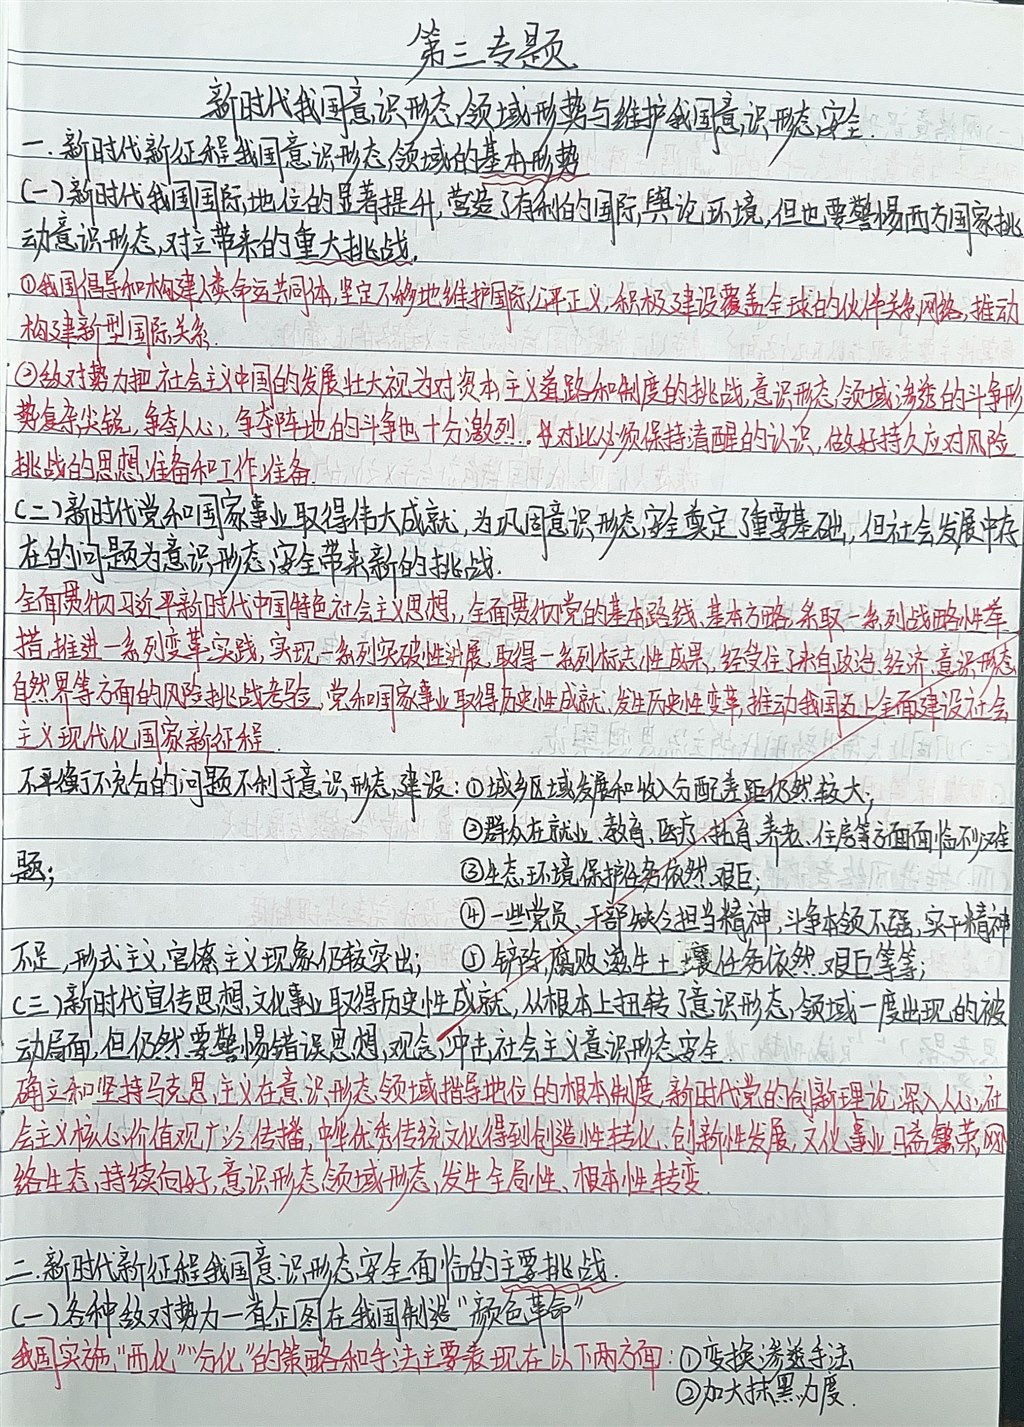 第三专题
新时代我国意识形态领域形势与维护我国意识形态安全.
一.新时代新征程我国意识形态领域的基本形势
(一)新时代我国国际地位的显著提升,营造了有利的国际舆论环境,但也要警惕西方国家挑
动意识形态对立带来的重大挑战.
①我国倡导和构建人类命运共同体,坚定不移地维护国际公平正义,积极建设覆盖全球的伙伴关系网络,推动
构建新型国际关系.
②敌对势力把社会主义中国的发展壮大视为对资本主义道路和制度的挑战,意识形态领域渗透的斗争形
势复杂尖锐,争夺人心,争夺阵地的斗争也十分激烈.对此必须保持清醒的认识,做好持久应对风险
挑战的思想准备和工作准备.
(二)新时代党和国家事业取得伟大成就,为巩固意识形态安全奠定了重要基础,但社会发展中存
在的问题为意识形态安全带来新的挑战.
全面贯彻习近平新时代中国特色社会主义思想,全面贯彻党的基本路线、基本方略,采取一系列战略性举
措,推进一系列变革实践,实现一系列突破性进展,取得一系列标志性成果,经受住了来自政治、经济、意识形态
自然界等方面的风险挑战考验,党和国家事业取得历史性成就、发生历史性变革,推动我国迈上全面建设社会
主义现代化国家新征程.
不平衡不充分的问题不利于意识形态建设:①城乡区域发展和收入分配差距仍然较大;
②群众在就业、教育、医疗、托育、养老、住房等方面面临不少难
题;
③生态环境保护任务依然艰巨;
④一些党员、干部缺乏担当精神,斗争本领不强,实干精神
不足,形式主义,官僚主义现象仍较突出; ⑤铲除腐败滋生土壤任务依然艰巨等等;
(三)新时代宣传思想文化事业取得历史性成就,从根本上扭转了意识形态领域一度出现的被
动局面,但仍然要警惕错误思想观念冲击社会主义意识形态安全
确立和坚持马克思主义在意识形态领域指导地位的根本制度,新时代党的创新理论深入人心,社
会主义核心价值观广泛传播,中华优秀传统文化得到创造性转化、创新性发展,文化事业日益繁荣,网
络生态持续向好,意识形态领域形态发生全局性、根本性转变.
二.新时代新征程我国意识形态安全面临的主要挑战.
(一)各种敌对势力一直企图在我国制造“颜色革命”
我国实施“西化”“分化”的策略和手法主要表现在以下两方面:①变换渗透手法
②加大抹黑力度.